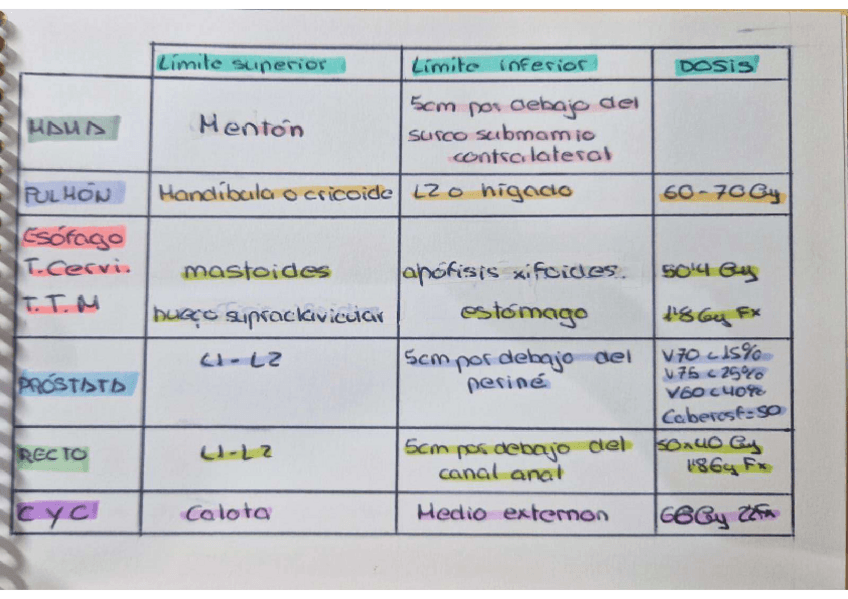 Límite superior Límite inferior DOSIS
MAMA Mentón 5cm por debajo del
surco submamio
contralateral
PULMÓN Mandíbula o cricoide L2 o hígado 60-70 Gy
Esófago
T. Cervi. mastoides apófisis xifoides. 50'4 Gy
T.T.M hueco supraclavicular estómago 1'8 Gy Fx
PRÓSTATA L1-L2 5cm por debajo del
periné
V70 <15%
V75 <25%
V60 <40%
Caberasf=50
RECTO L1-L2 5cm por debajo del
canal anal
50x40 Gy
1'8Gy Fx
C y C Calota Medio externon 66Gy